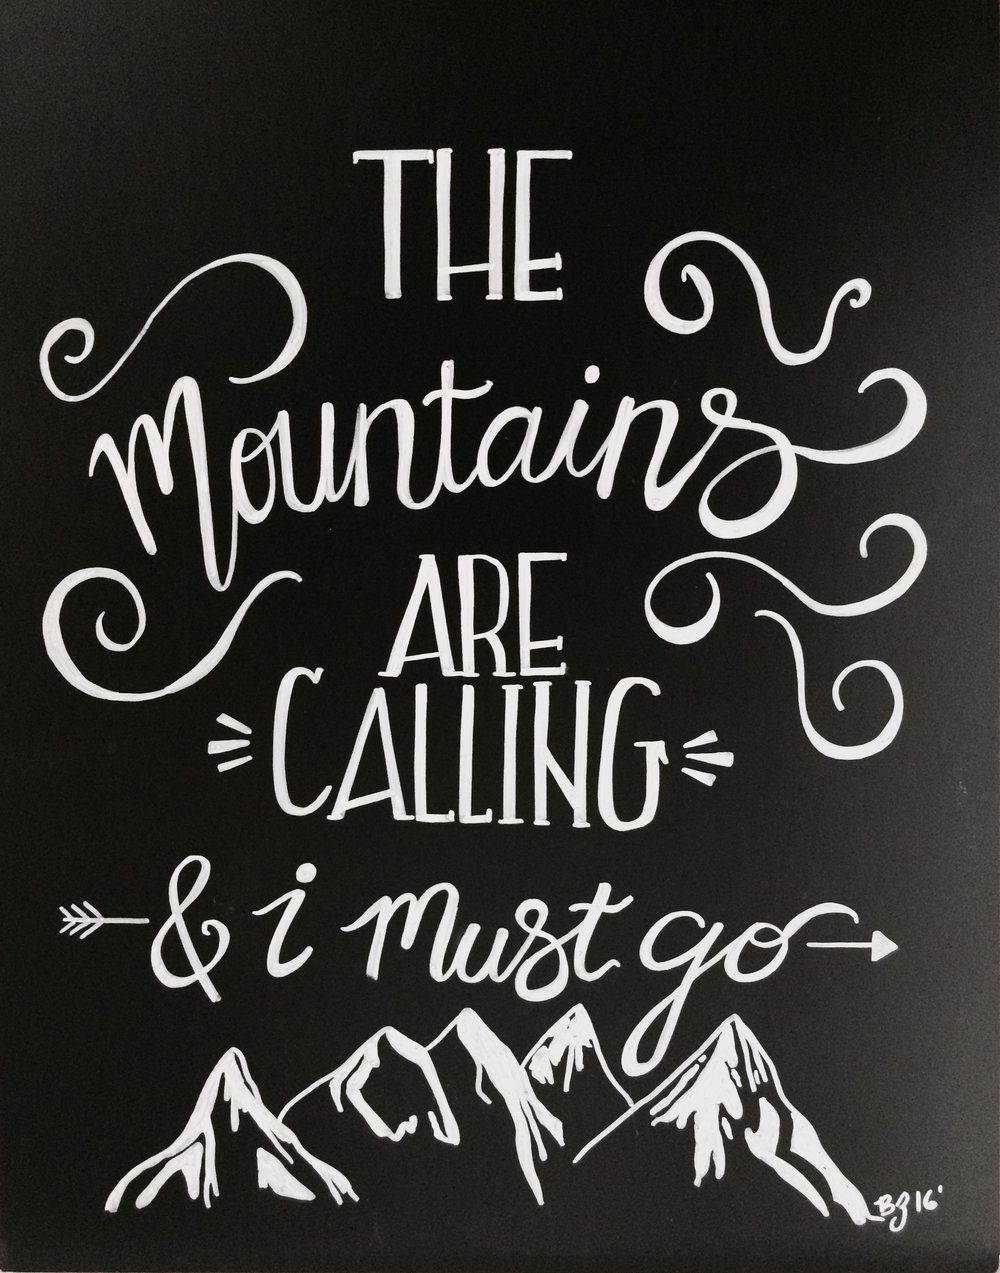 THE
Mountains
ARE
CALLING
& i must go
BZ 16'